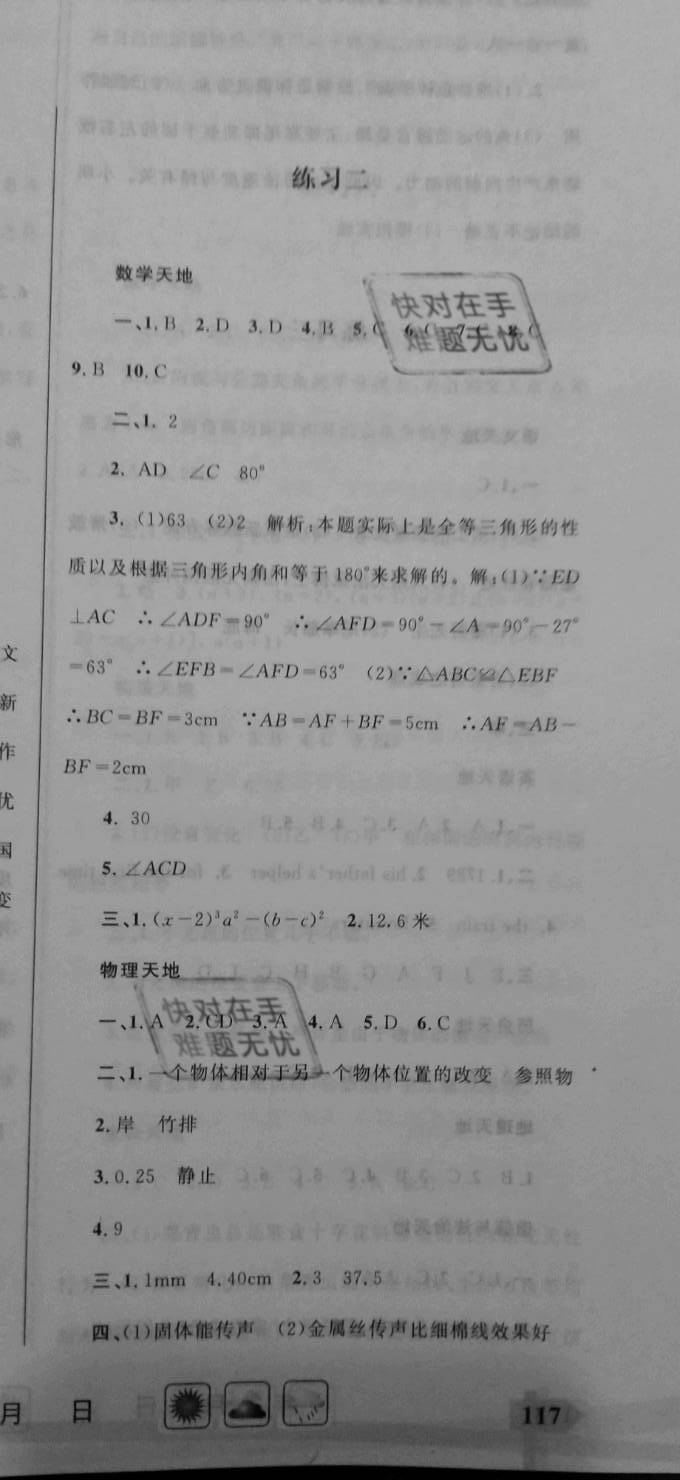 练习二
数学天地
一、1. B 2. D 3. D 4. B 5. C
快对在手
难题无忧
9. B 10. C
二、1. 2
2. AD ∠C 80°
3. (1)63 (2)2 解析:本题实际上是全等三角形的性
质以及根据三角形内角和等于180°来求解的。解:(1)∵ED
⊥AC ∴∠ADF=90° ∴∠AFD=90°-∠A=90°-27°
=63° ∴∠EFB=∠AFD=63° (2)∵△ABC≌△EBF
∴BC=BF=3cm ∵AB=AF+BF=5cm ∴AF=AB-
BF=2cm
4. 30
5. ∠ACD
三、1. (x-2)³a²-(b-c)² 2. 12.6米
物理天地
快对在手
难题无忧
一、1. A 2. CD 3. A 4. A 5. D 6. C
二、1. 一个物体相对于另一个物体位置的改变 参照物
2. 岸 竹排
3. 0.25 静止
4. 9
三、1. 1mm 4.40cm 2. 3 37.5
四、(1)固体能传声 (2)金属丝传声比细棉线效果好
文
新
作
优
国
变
月 日
117